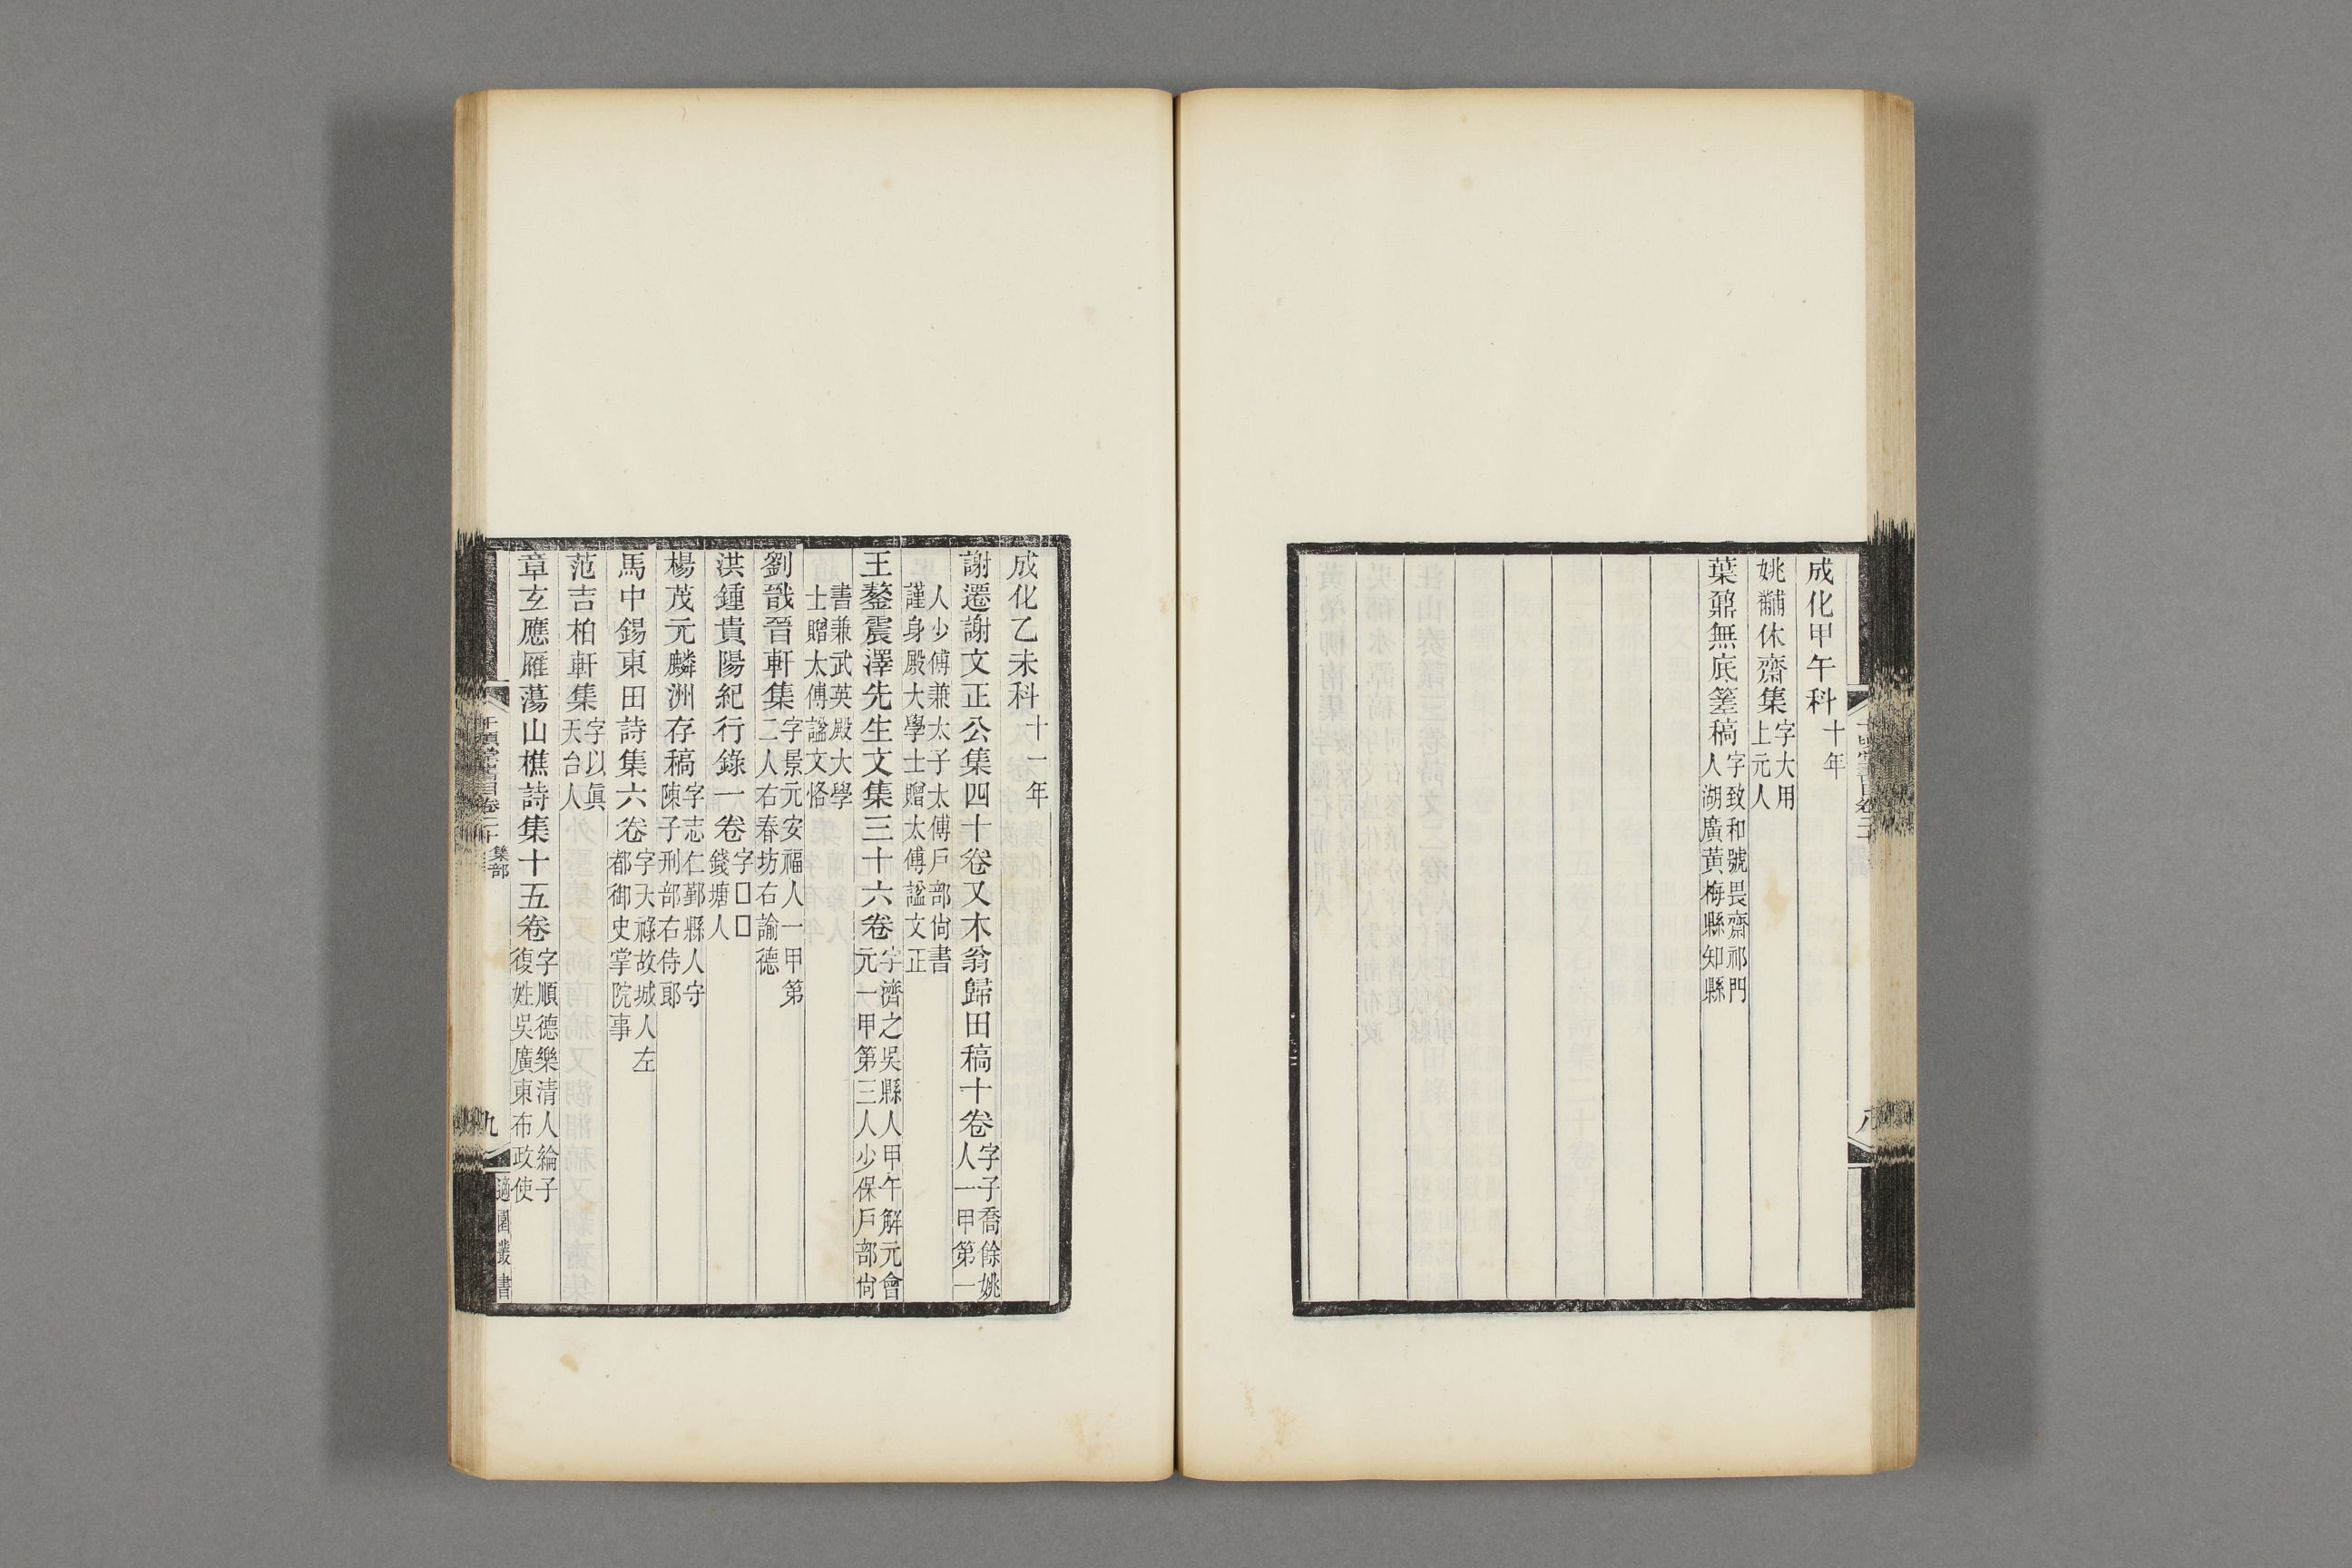 成化甲午科十年
姚黼休齋集字大用上元人
葉鼐無底簍稿字致和號畏齋祁門人湖廣黃梅縣知縣
八
成化乙未科十一年
謝遷謝文正公集四十卷又木翁歸田稿十卷字子喬餘姚人一甲第一
人少傅兼太子太傅戶部尙書謹身殿大學士贈太傅諡文正
王鏊震澤先生文集三十六卷字濟之吳縣人甲午解元會元一甲第三人少保戶部尙
書兼武英殿大學士贈太傅諡文恪
劉戩晉軒集字景元安福人一甲第二人右春坊右諭德
洪鍾貴陽紀行錄一卷字□□錢塘人
楊茂元麟洲存稿字志仁鄞縣人守陳子刑部右侍郞
馬中錫東田詩集六卷字天祿故城人左都御史掌院事
范吉柏軒集字以眞天台人
章玄應雁蕩山樵詩集十五卷字順德樂清人綸子復姓吳廣東布政使
千頃堂書目卷二十 集部
九
適園叢書